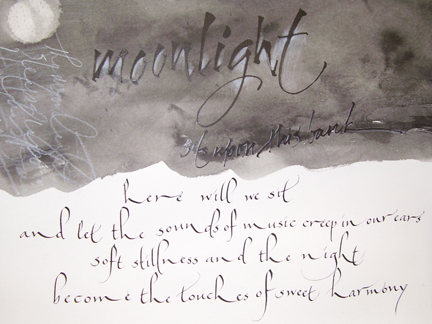 moonlight
upon this bank
here will we sit
and let the sounds of music creep in our ears
soft stillness and the night
become the touches of sweet harmony